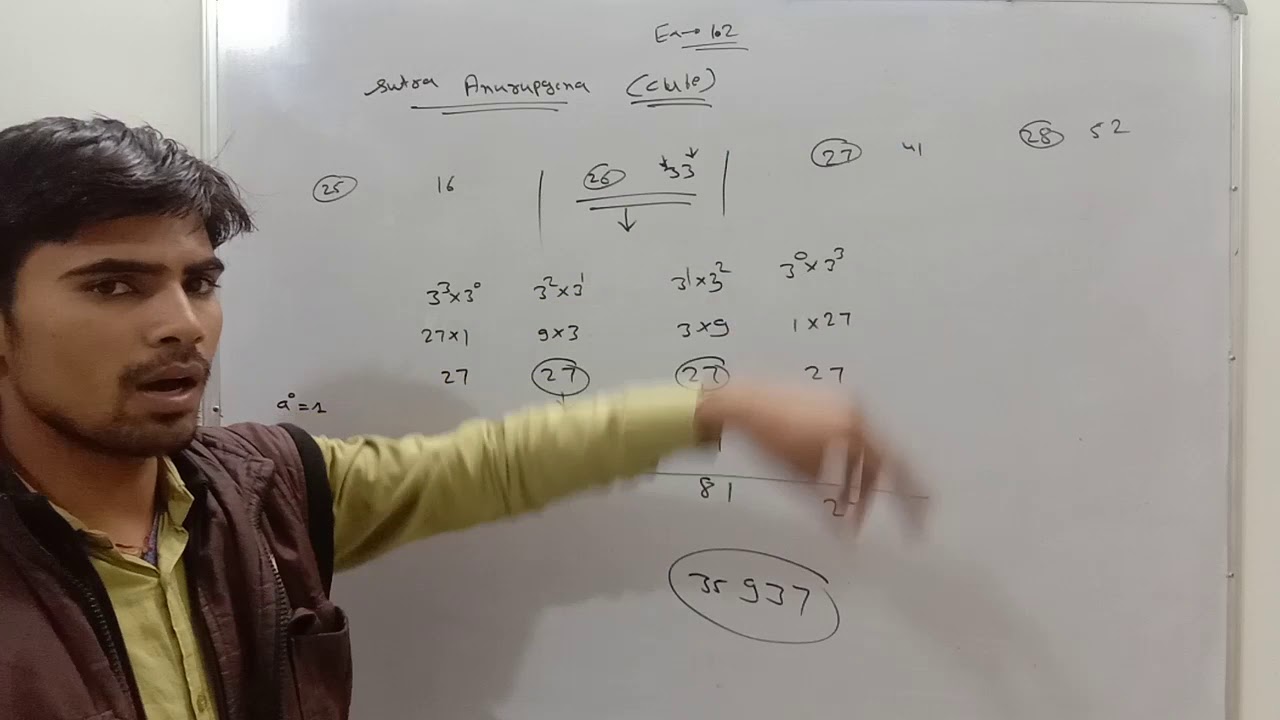 Ex→1.2
Sutra Anurupyena (cube)
(25) 16 | (26) 33 | (27) 41 (28) 52
↓
3³×3⁰ 3²×3¹ 3¹×3² 3⁰×3³
27×1 9×3 3×9 1×27
27 27 27 27
a⁰=1
81
35937